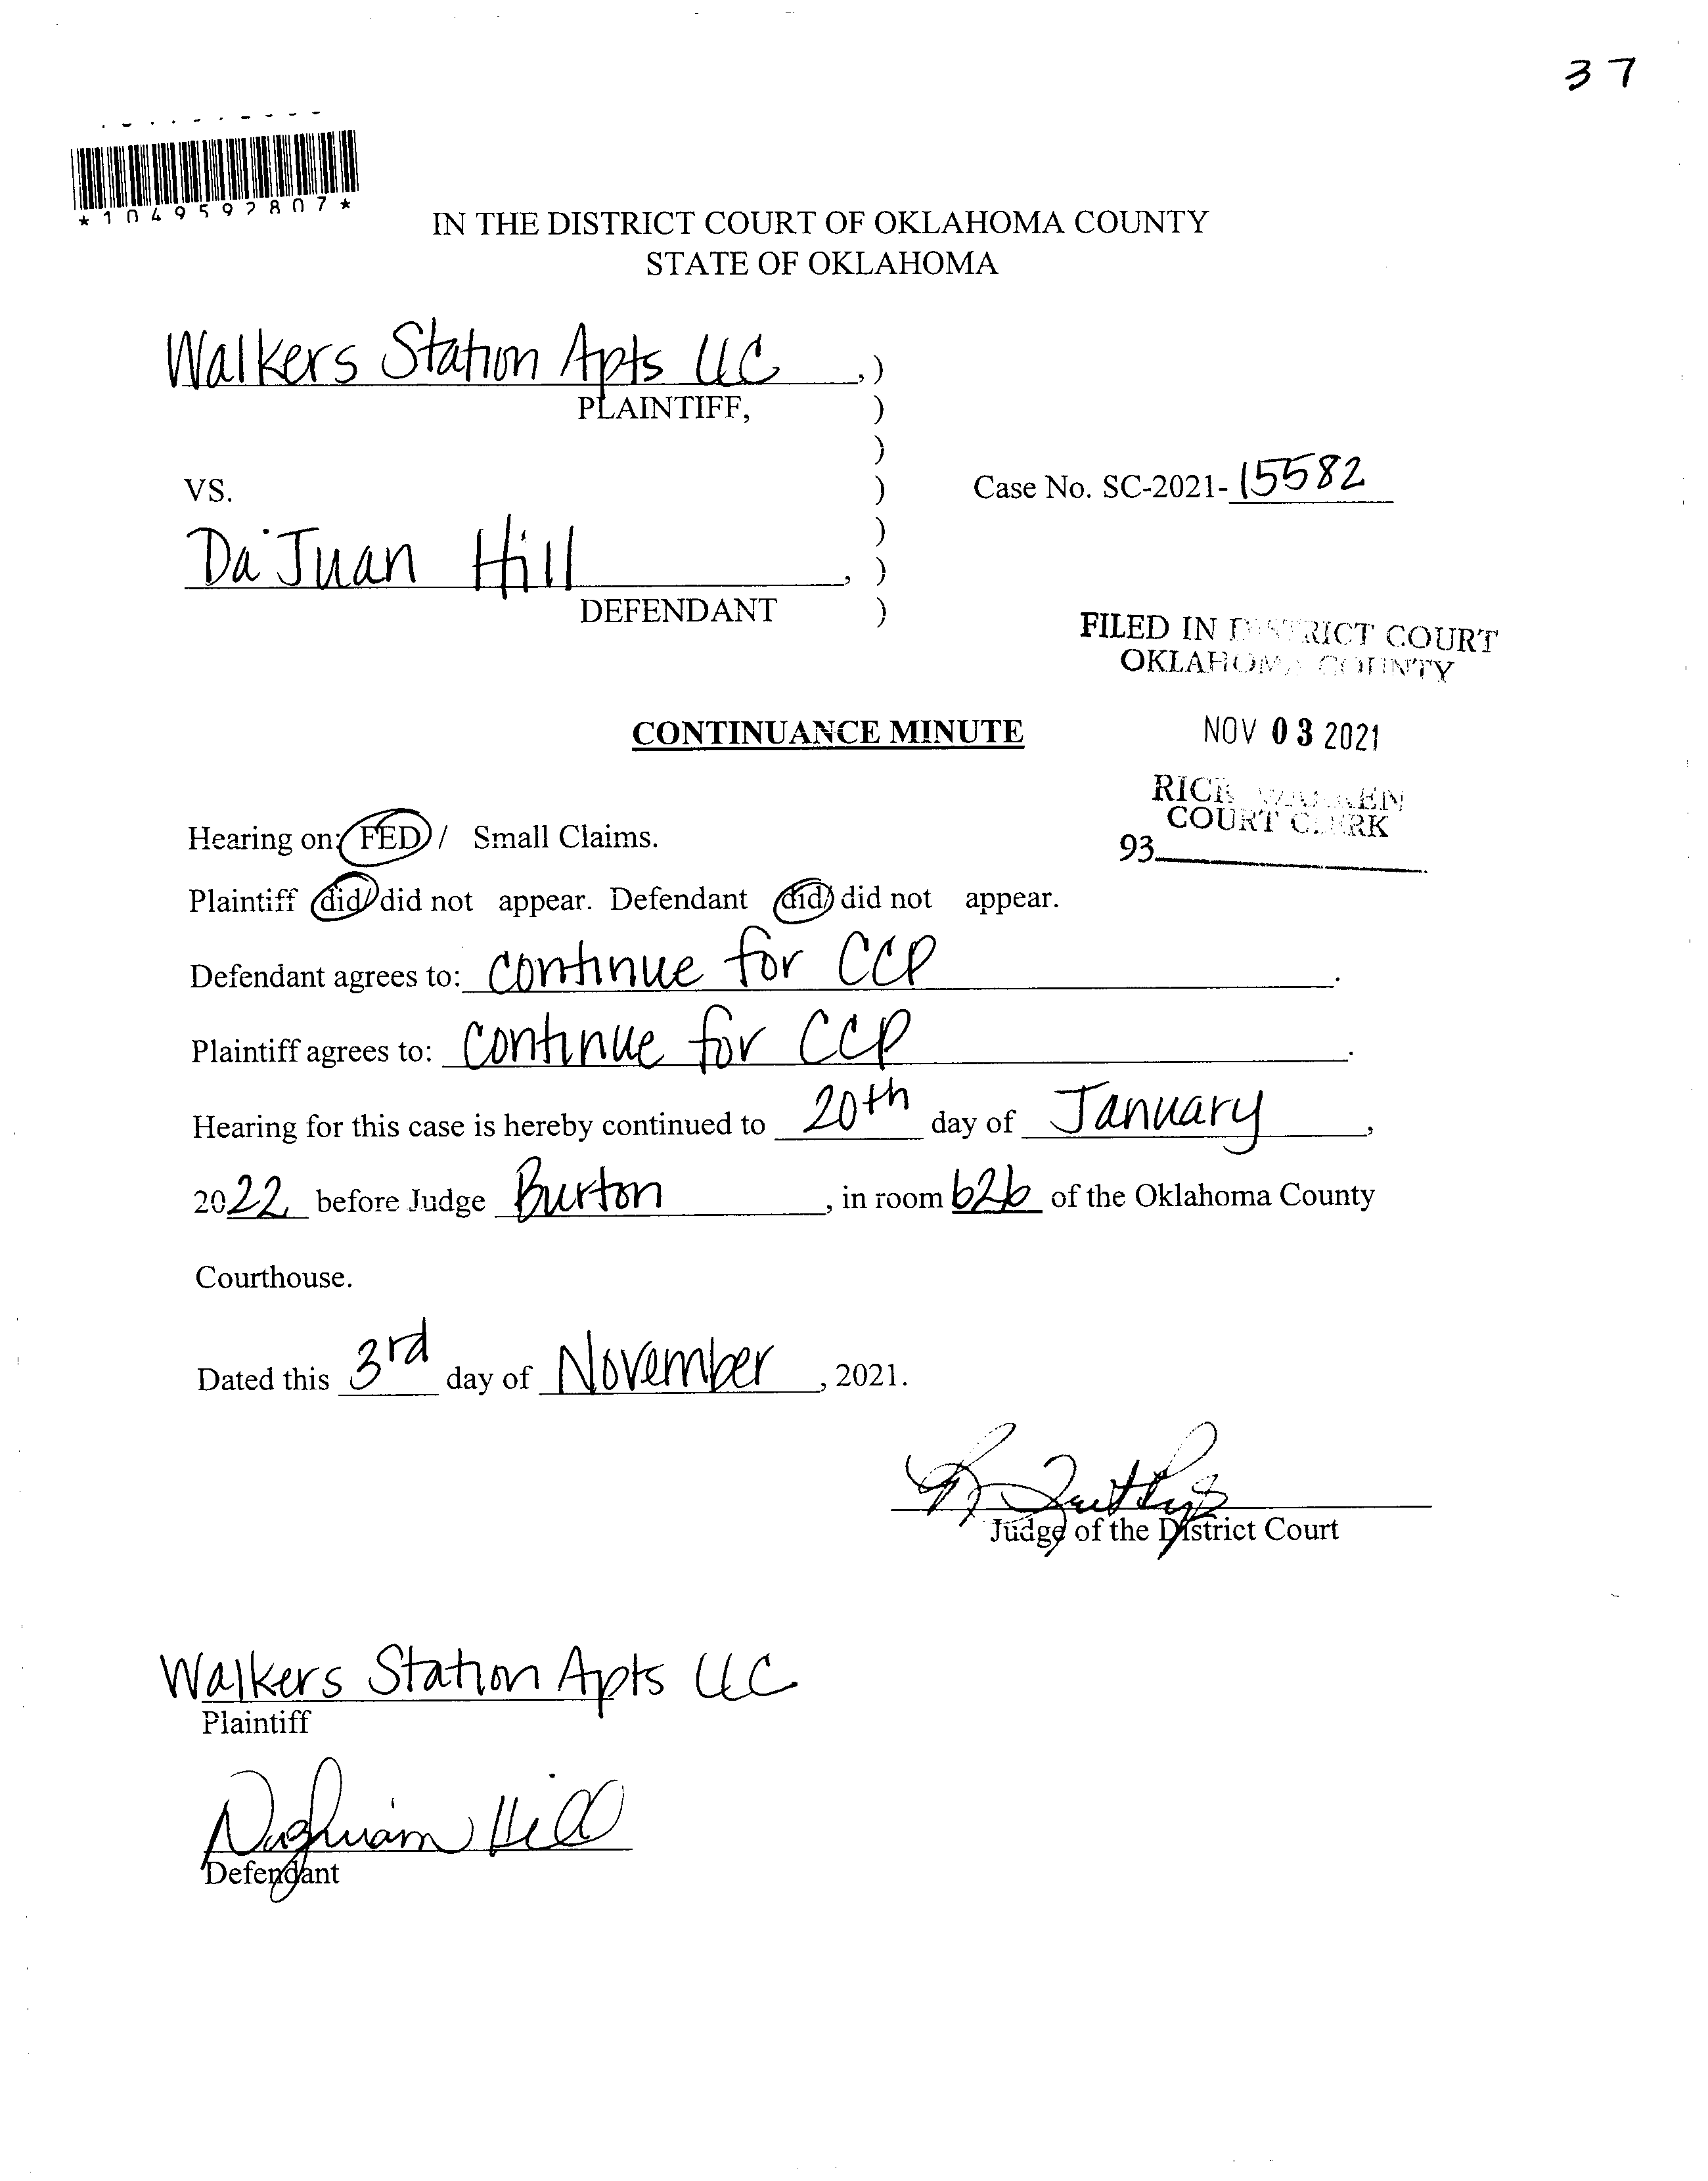 37
*1049592807*
IN THE DISTRICT COURT OF OKLAHOMA COUNTY
STATE OF OKLAHOMA
Walkers Station Apts LLC ,)
PLAINTIFF, )
)
VS. ) Case No. SC-2021-15582
)
Da'Juan Hill , )
DEFENDANT )
FILED IN DISTRICT COURT
OKLAHOMA COUNTY
CONTINUANCE MINUTE NOV 03 2021
RICK WARREN
COURT CLERK
93
Hearing on: FED / Small Claims.
Plaintiff did/ did not appear. Defendant did/ did not appear.
Defendant agrees to: continue for CCP .
Plaintiff agrees to: continue for CCP .
Hearing for this case is hereby continued to 20th day of January ,
2022 before Judge Burton , in room b2b of the Oklahoma County
Courthouse.
Dated this 3rd day of November , 2021.
Judge of the District Court
Walkers Station Apts LLC
Plaintiff
Hill
Defendant